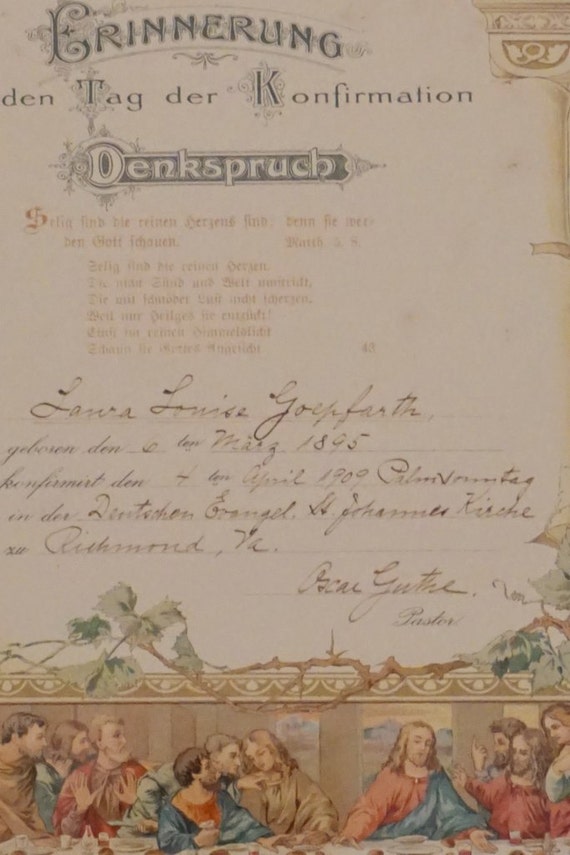 Erinnerung
den Tag der Konfirmation
Denkspruch
Selig sind die reinen Herzens sind; denn sie wer-
den Gott schauen. Matth. 5, 8.
Selig sind die reinen Herzen,
Die nicht Sünd und Welt umstrickt,
Die mit schnöder Lust nicht scherzen,
Weil nur Heilges sie entzückt!
Einst im reinen Himmelslicht
Schaun sie Gottes Angesicht 43
Laura Louise Goepfarth,
geboren den 6 ten März 1895
konfirmirt den 4 ten April 1909 Palmsonntag
in der Deutschen Evangel. St. Johannes Kirche
zu Richmond, Va.
Oscar Guthe.
Pastor